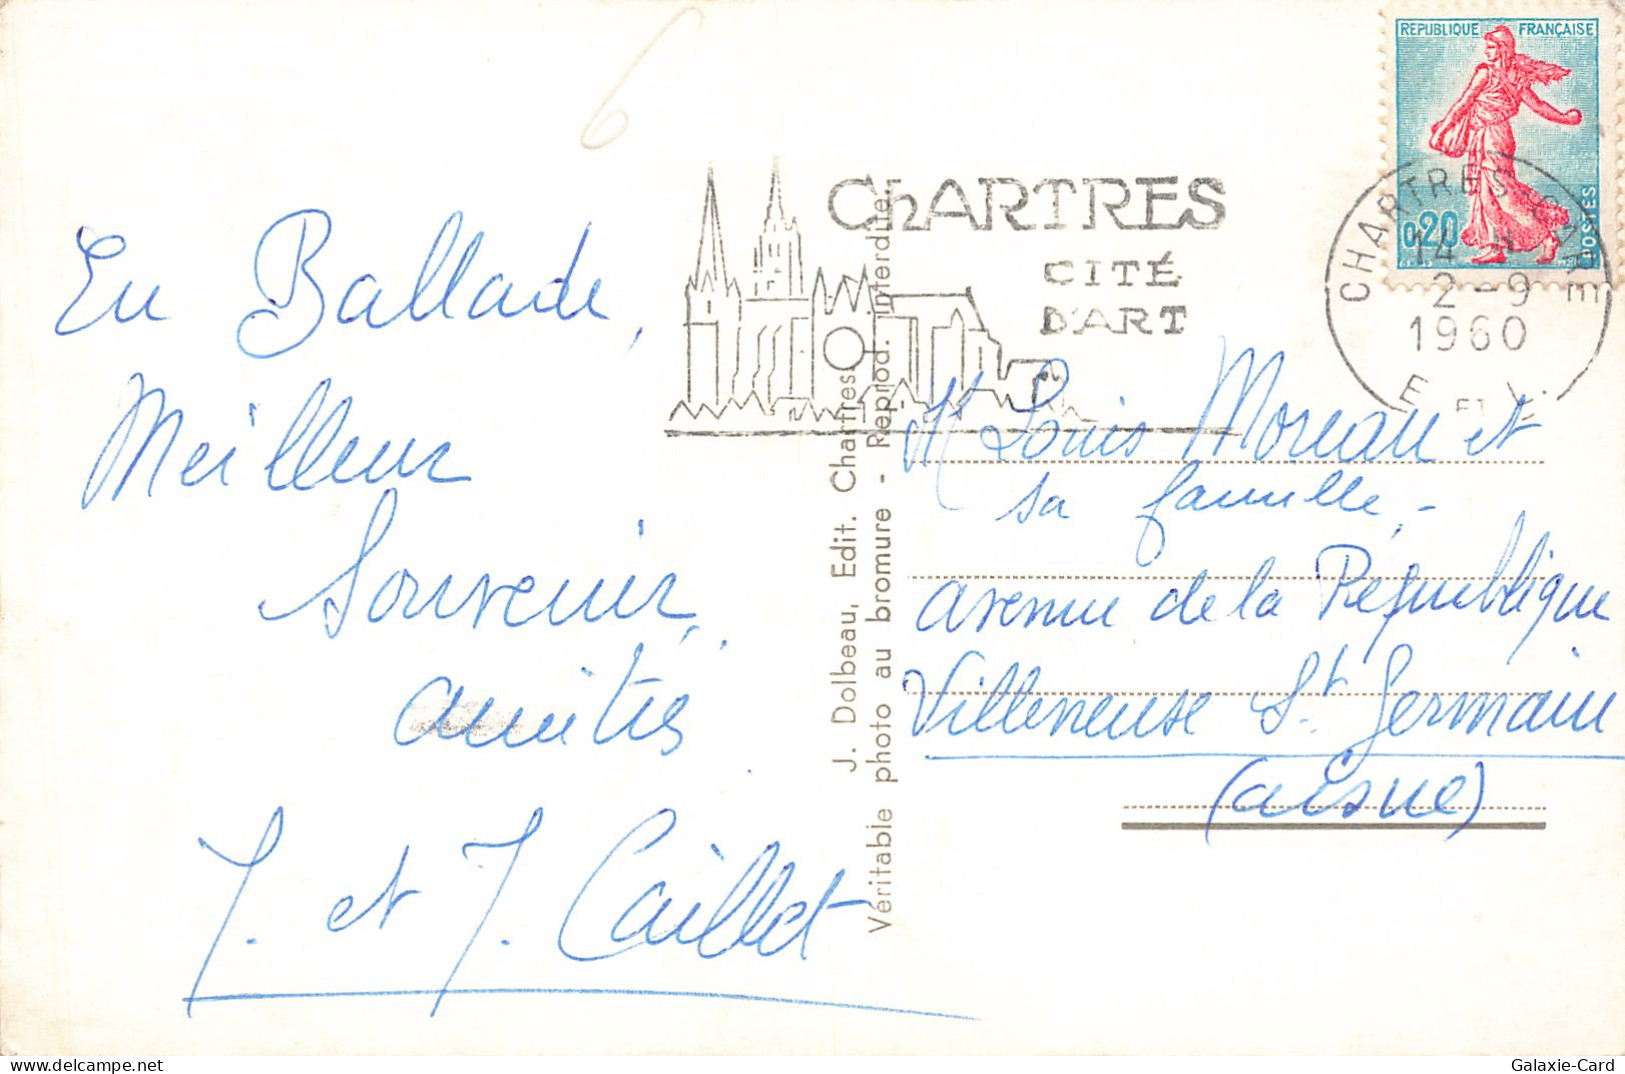 6
REPUBLIQUE FRANÇAISE
0,20
POSTES
CHARTRES GARE
14 H
2-9
1960
E. ET L.
ChARTRES
CITÉ
D'ART
En Ballade,
Meilleur
Souvenir,
amitiés
J. et J. Caillet
J. Dolbeau, Edit. Chartres
Véritable photo au bromure - Reprod. interdite.
Mr Louis Moreau et
sa famille -
avenue de la République
Villeneuse St Germain
(aisne)
delcampe.net
Galaxie-Card